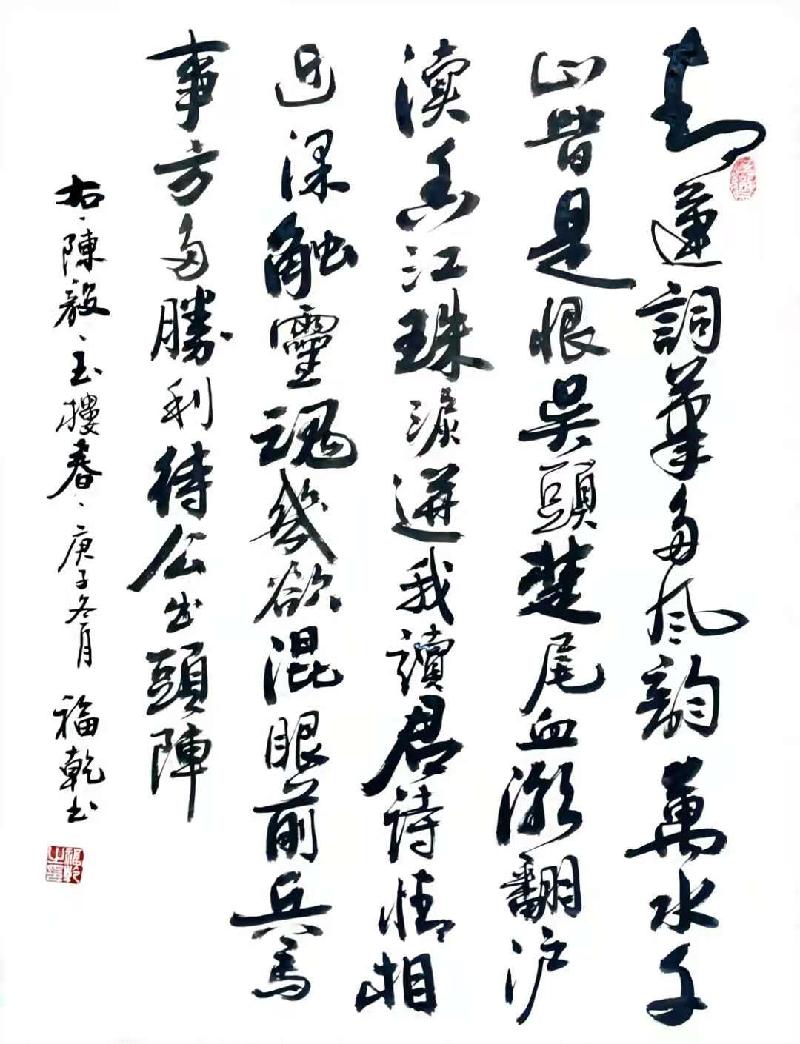 蓮詞筆多風韻萬水千
山皆是恨吳頭楚尾血潮翻沪
渎香江珠淚迸我讀君詩情相
近深触靈魂幾欲混眼前兵馬
事方多勝利待公出頭陣
右、陳毅、玉樓春、庚子冬月 福乾书